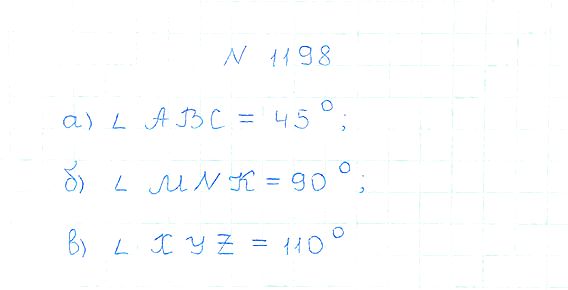 N 1198
а) ∠ ABC = 45°;
б) ∠ MNK = 90°;
в) ∠ XYZ = 110°